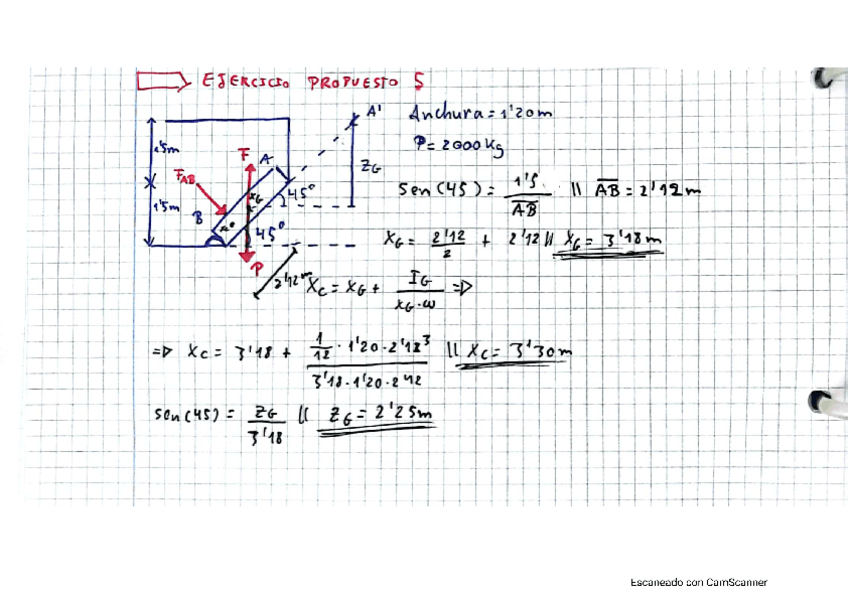 EJERCICIO PROPUESTO 5
Anchura = 1'20 m
P = 2000 Kg
1'5m
1'5m
F
A
A'
F_AB
B
X_G
45°
45°
Z_G
P
2'12 m
Sen (45) = 1'5 / AB // AB = 2'12 m
X_G = 2'12 / 2 + 2'12 // X_G = 3'18 m
X_C = X_G + I_G / X_G · ω =>
=> X_C = 3'18 + 1/12 · 1'20 · 2'12³ / 3'18 · 1'20 · 2'12 // X_C = 3'30 m
Sen (45) = Z_G / 3'18 // Z_G = 2'25 m
Escaneado con CamScanner